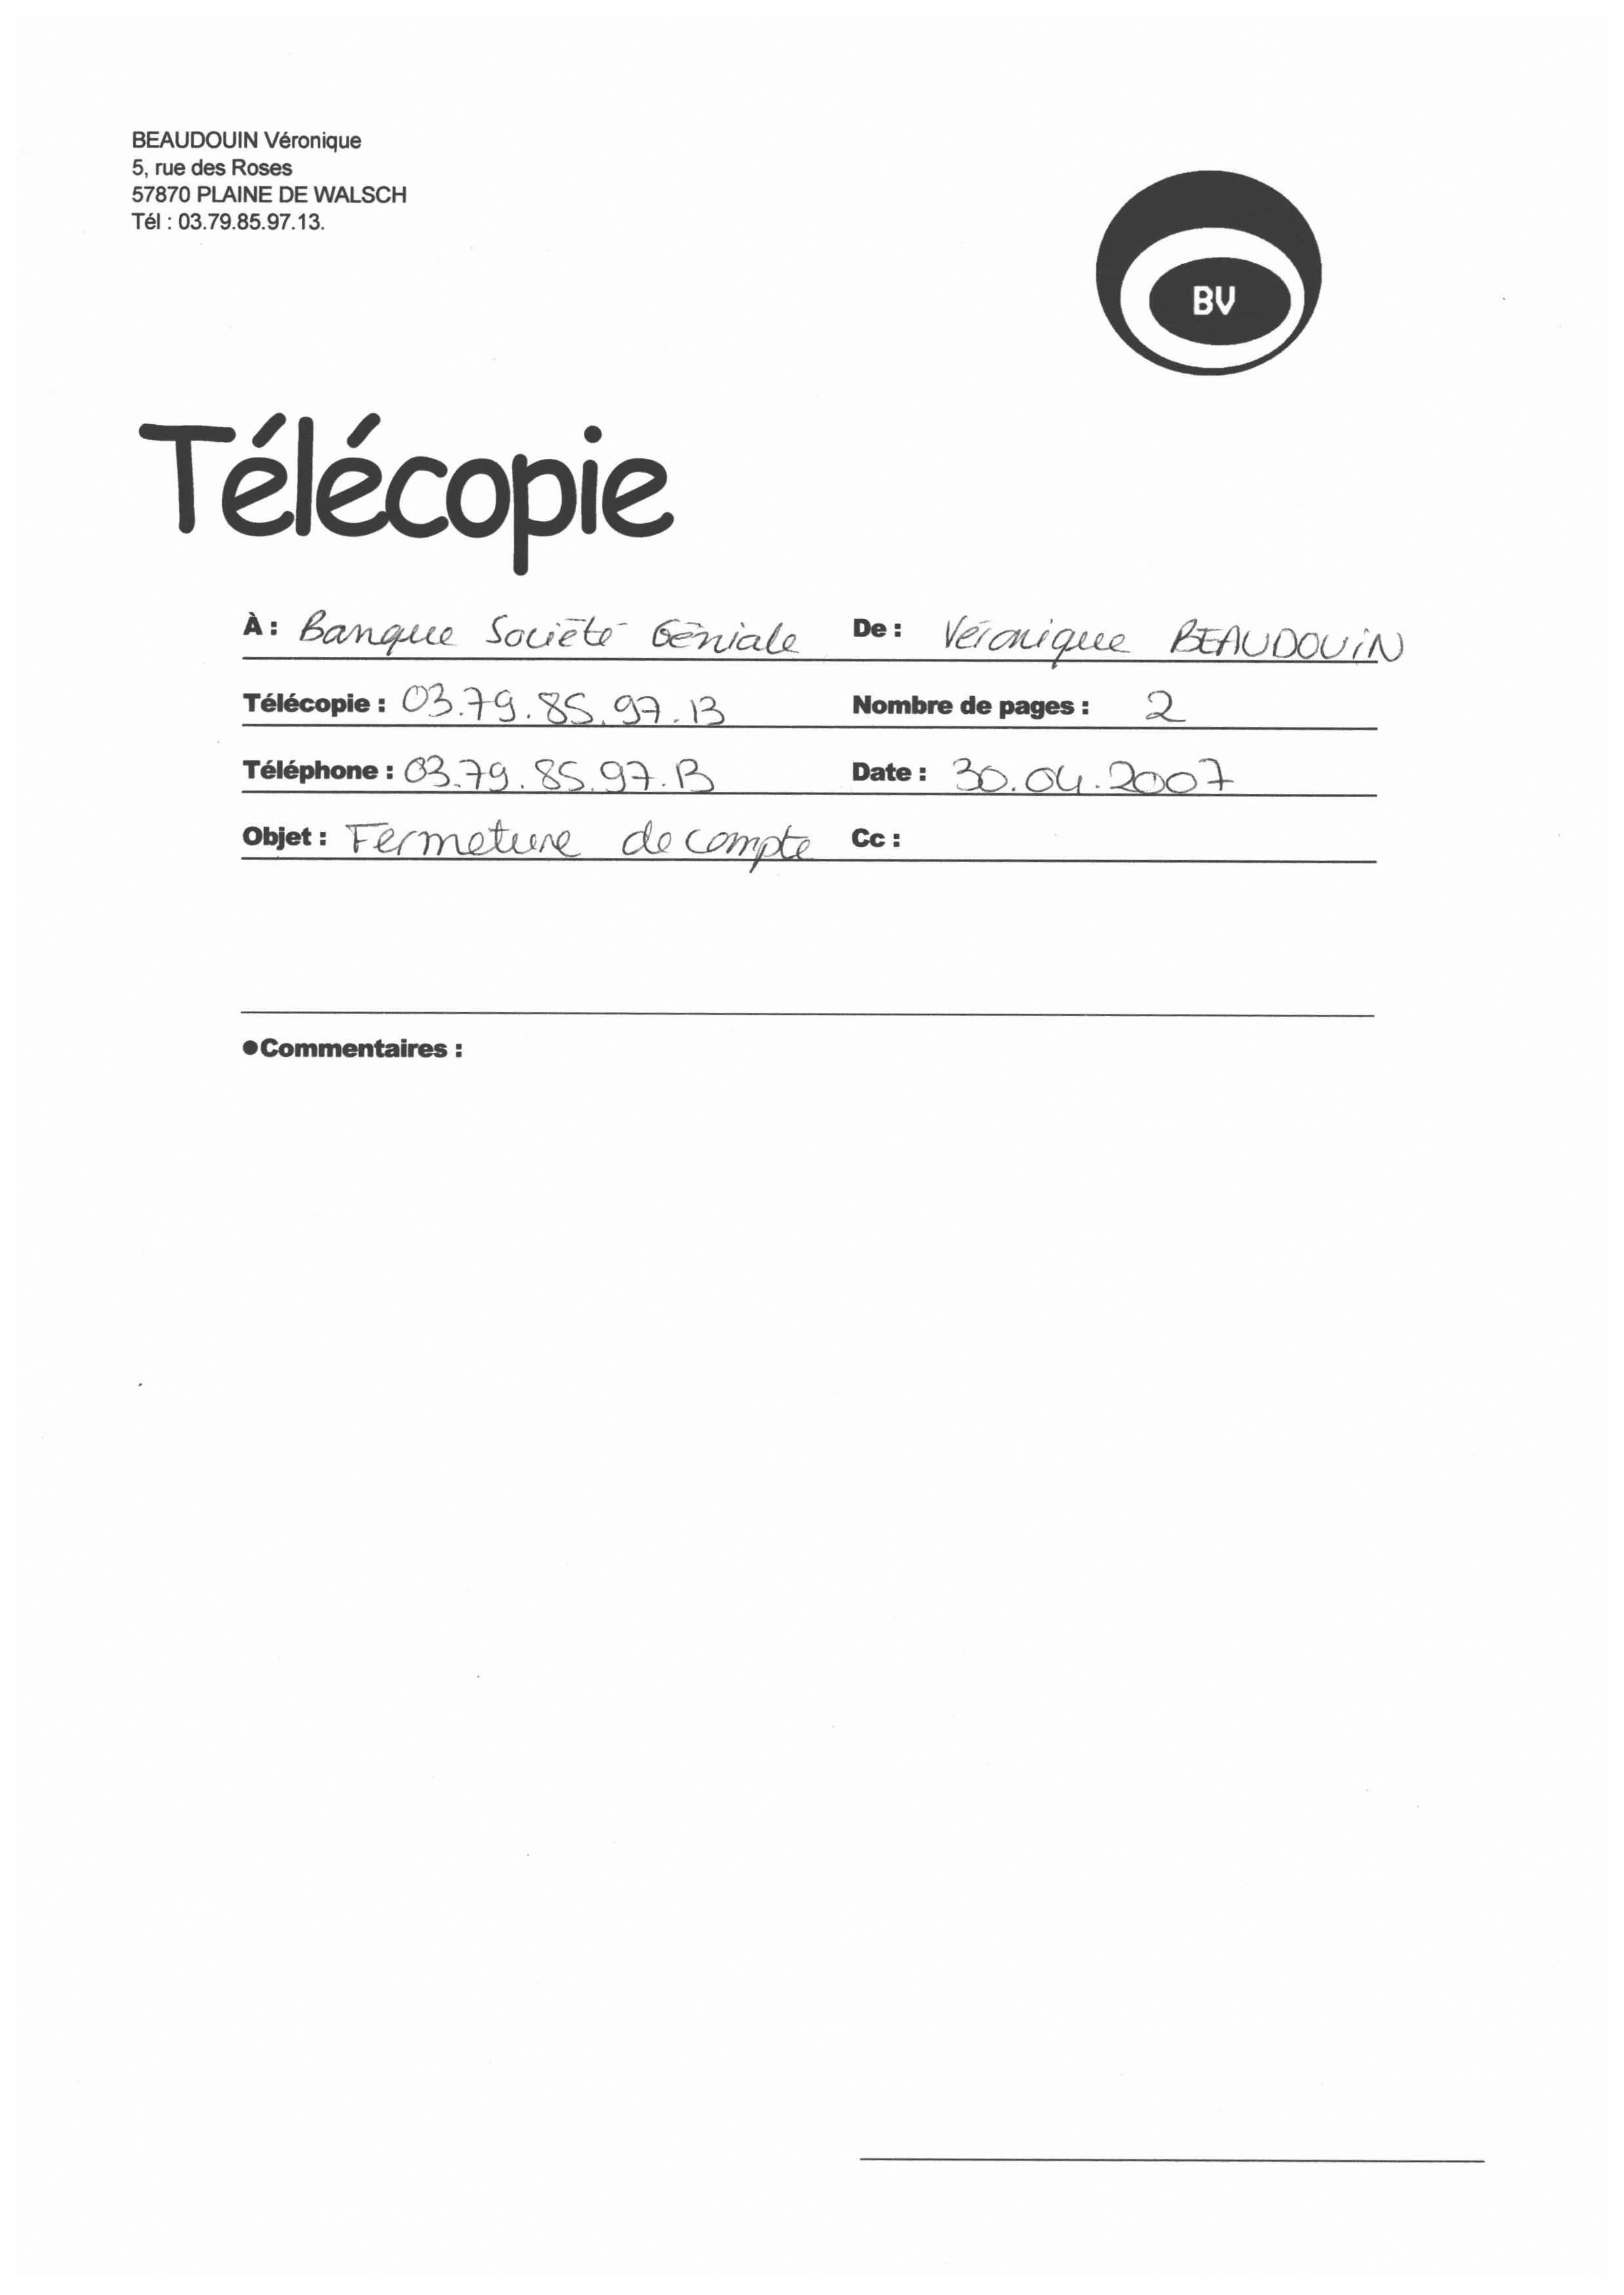 BEAUDOUIN Véronique
5, rue des Roses
57870 PLAINE DE WALSCH
Tél : 03.79.85.97.13.
BV
Télécopie
À : Banque Société Géniale De : Véronique BEAUDOUIN
Télécopie : 03.79.85.97.13 Nombre de pages : 2
Téléphone : 03.79.85.97.13 Date : 30.04.2007
Objet : Fermeture de compte Cc :
●Commentaires :